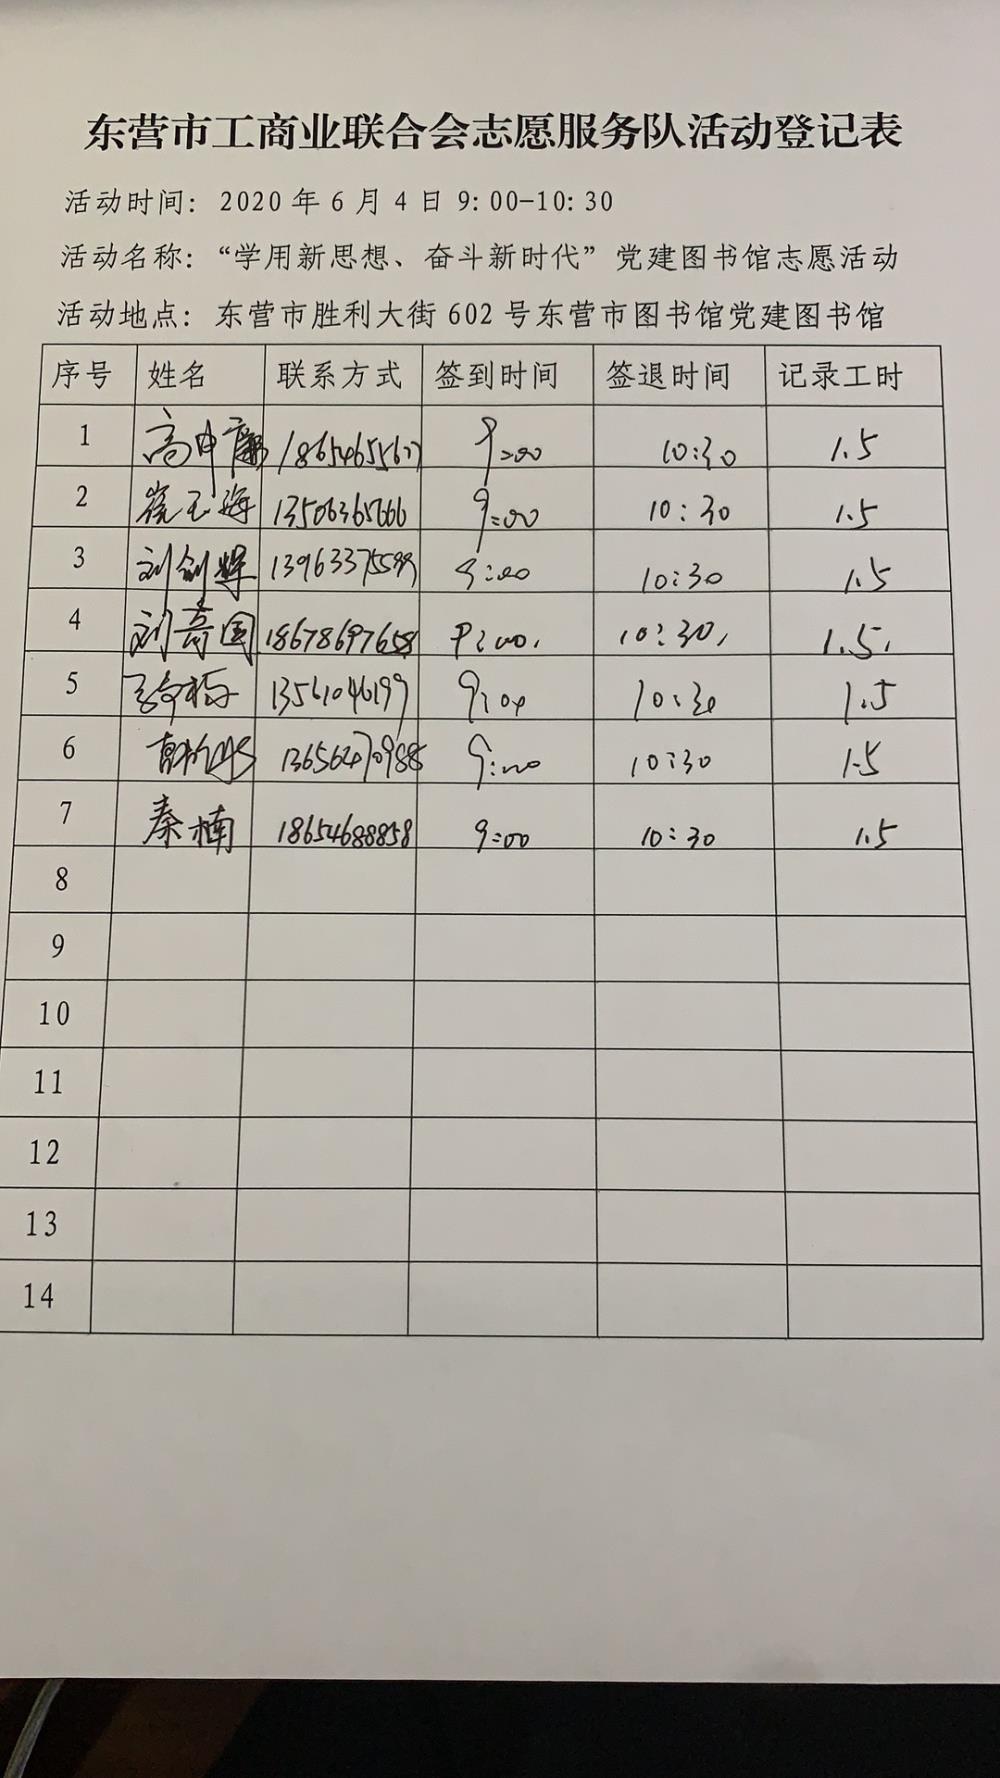 东营市工商业联合会志愿服务队活动登记表
活动时间：2020年6月4日9:00-10:30
活动名称：“学用新思想、奋斗新时代”党建图书馆志愿活动
活动地点：东营市胜利大街602号东营市图书馆党建图书馆
序号 姓名 联系方式 签到时间 签退时间 记录工时
1 9:00 10:30 1.5
2 崔玉海 13506365666 9:00 10:30 1.5
3 刘剑辉 9:00 10:30 1.5
4 刘奇国 18678697658 9:00. 10:30. 1.5.
5 13561046199 9:00 10:30 1.5
6 13656470988 9:00 10:30 1.5
7 秦楠 18654688858 9:00 10:30 1.5
8
9
10
11
12
13
14